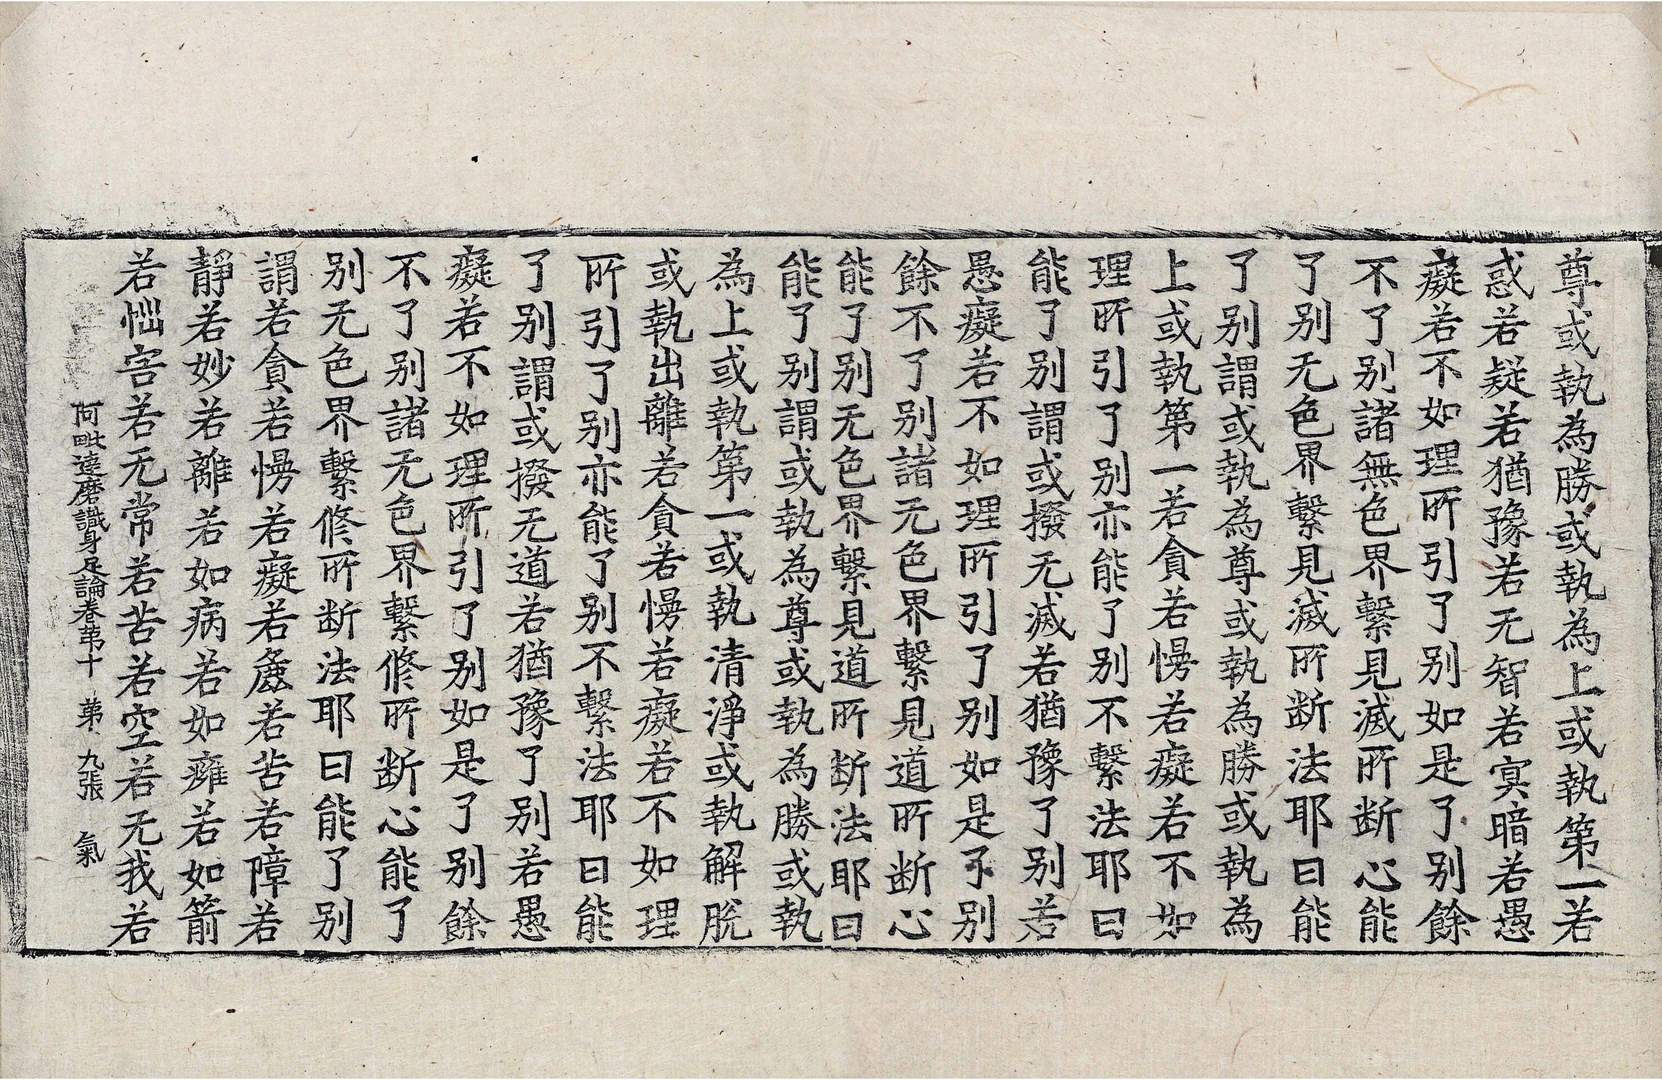 尊或執為勝或執為上或執第一若
惑若疑若猶豫若无智若冥暗若愚
癡若不如理所引了别如是了别餘
不了别諸無色界繫見滅所断心能
了别无色界繫見滅所断法耶曰能
了别謂或執為尊或執為勝或執為
上或執第一若貪若慢若癡若不如
理所引了别亦能了别不繫法耶曰
能了别謂或撥无滅若猶豫了别若
愚癡若不如理所引了别如是了别
餘不了别諸无色界繫見道所断心
能了别无色界繫見道所断法耶曰
能了别謂或執為尊或執為勝或執
為上或執第一或執清淨或執解脫
或執出離若貪若慢若癡若不如理
所引了别亦能了别不繫法耶曰能
了别謂或撥无道若猶豫了别若愚
癡若不如理所引了别如是了别餘
不了别諸无色界繫修所断心能了
别无色界繫修所断法耶曰能了别
謂若貪若慢若癡若麁若苦若障若
靜若妙若離若如病若如癰若如箭
若惱害若无常若苦若空若无我若
阿毗達磨識身足論卷苐十 苐九張 氣